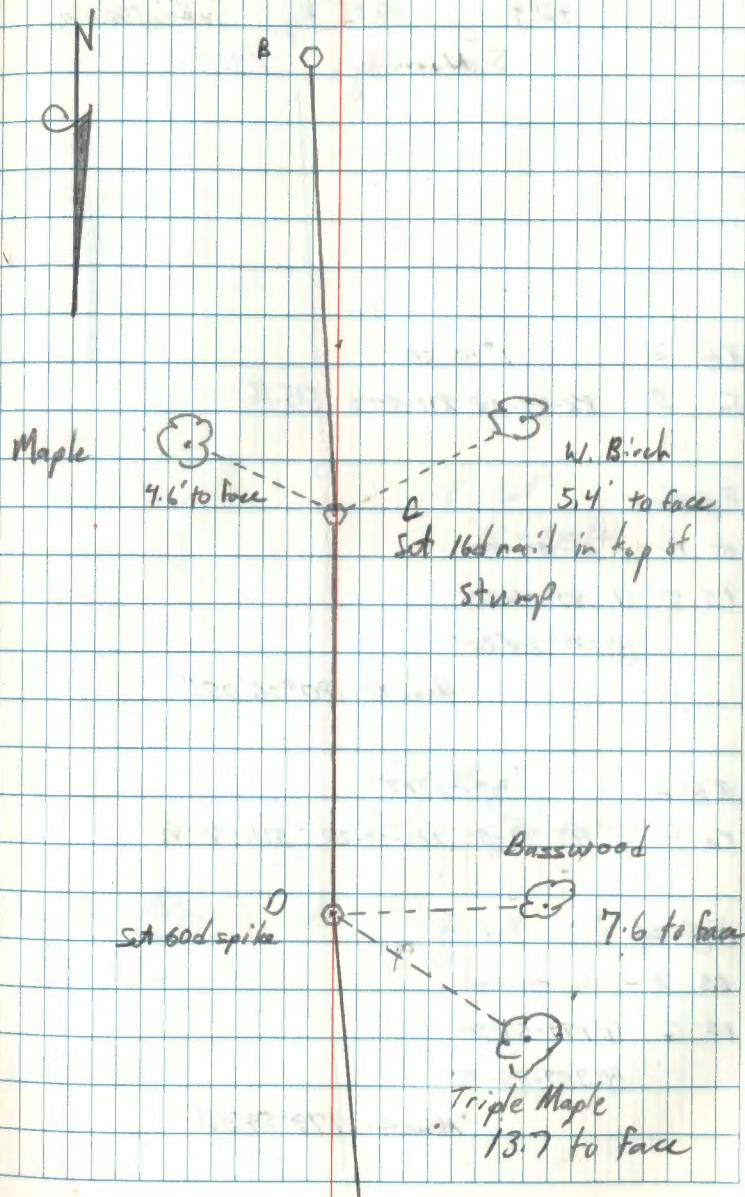 N
B
Maple
4.6' to face
W. Birch
5.4' to face
C
Set 16d nail in top of
stump
Basswood
D
Set 60d spike
7.6 to face
Triple Maple
13.7 to face